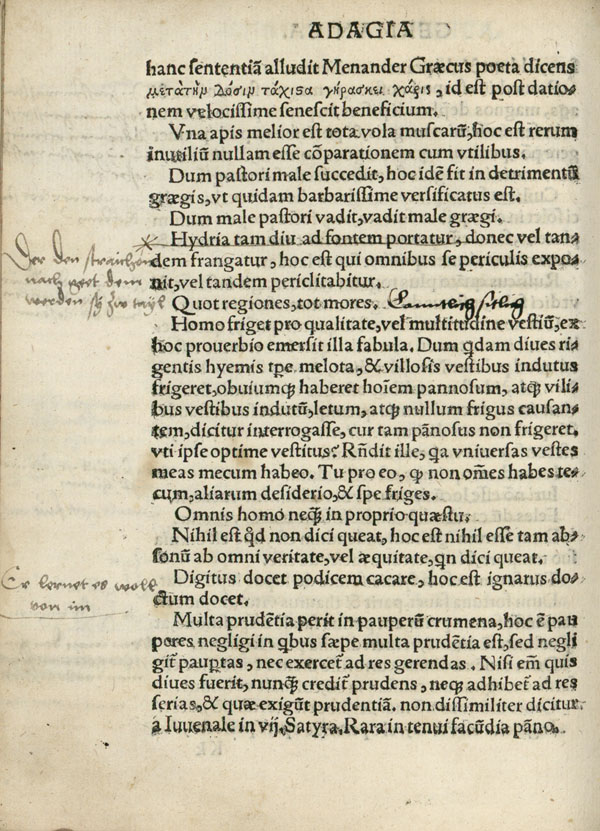 ADAGIA
hanc sententiã alludit Menander Græcus poeta dicens
μετατὴν δόσιν τάχιϛα γηράσκει χάρις, id est post datio-
nem velocissime senescit beneficium.
Vna apis melior est tota vola muscarũ, hoc est rerum
inutiliũ nullam esse cõparationem cum vtilibus.
Dum pastori male succedit, hoc idẽ fit in detrimentũ
grægis, vt quidam barbarissime versificatus est.
Dum male pastori vadit, vadit male grægi.
Hydria tam diu ad fontem portatur, donec vel tan-
Der den
dem frangatur, hoc est qui omnibus se periculis expo-
nach dem
nit, vel tandem periclitabitur.
werden
Quot regiones, tot mores.
Homo friget pro qualitate, vel multitudine vestiũ, ex
hoc prouerbio emersit illa fabula. Dum qdam diues ri-
gentis hyemis tpe melota, & villosis vestibus indutus
frigeret, obuiumqꝫ haberet hoĩem pannosum, atqꝫ vili-
bus vestibus indutũ, letum, atqꝫ nullum frigus causan-
tem, dicitur interrogasse, cur tam pãnosus non frigeret,
vti ipse optime vestitus? Rñdit ille, qa vniuersas vestes
meas mecum habeo. Tu pro eo, ꝙ non om̃es habes te-
cum, aliarum desiderio, & spe friges.
Omnis homo neqꝫ in proprio quæstu.
Nihil est qd non dici queat, hoc est nihil esse tam ab-
sonũ ab omni veritate, vel æquitate, qn dici queat.
Er lernet es woll
von im
Digitus docet podicem cacare, hoc est ignarus do-
ctum docet.
Multa prudẽtia perit in pauperũ crumena, hoc ẽ pau
peres negligi in qbus sæpe multa prudẽtia est, sed negli
git̃ paupṫas, nec exercet̃ ad res gerendas. Nisi em̃ quis
diues fuerit, nunqꝫ credit̃ prudens, neqꝫ adhibet̃ ad res
serias, & quæ exigũt prudentiã. non dissimiliter dicitur
a Iuuenale in vij. Satyra. Rara in tenui facũdia pãno.